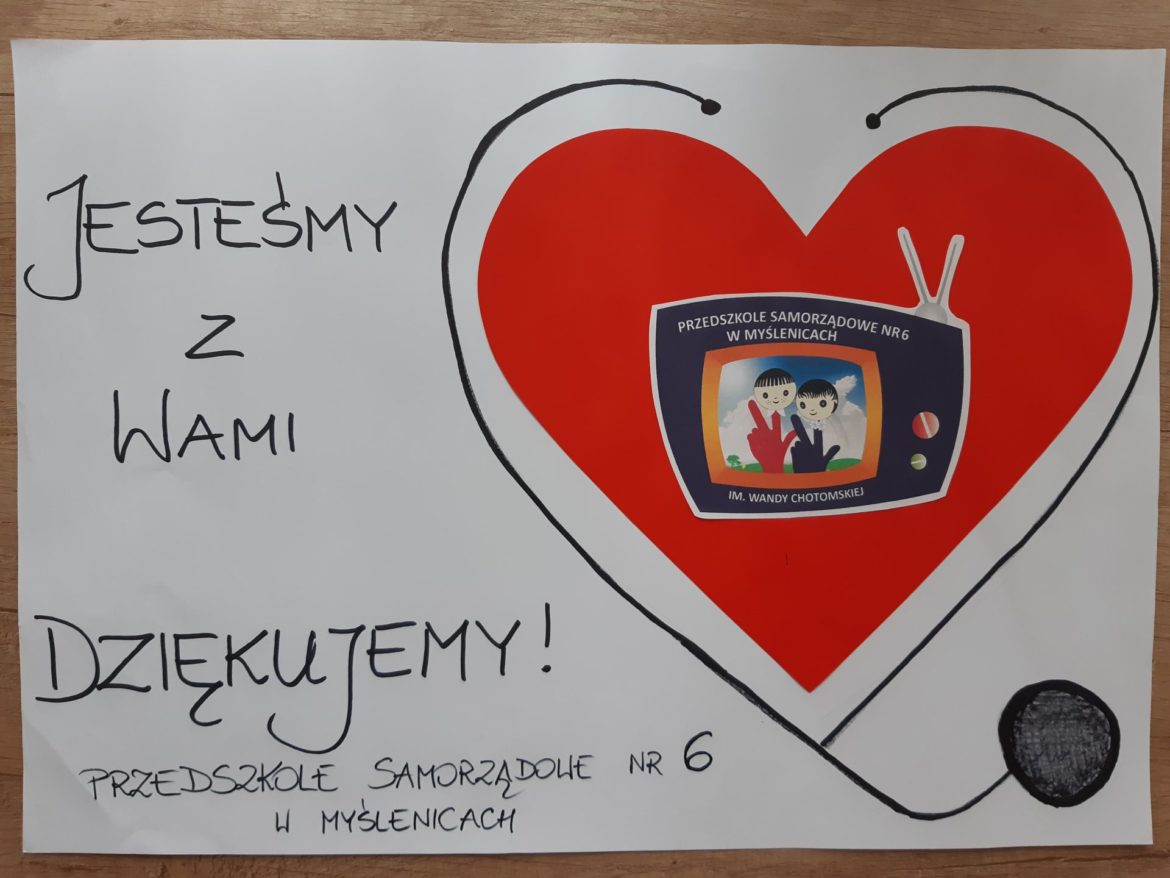 JESTEŚMY
Z
WAMI
DZIĘKUJEMY!
PRZEDSZKOLE SAMORZĄDOWE NR 6
W MYŚLENICACH
PRZEDSZKOLE SAMORZĄDOWE NR 6
W MYŚLENICACH
IM. WANDY CHOTOMSKIEJ